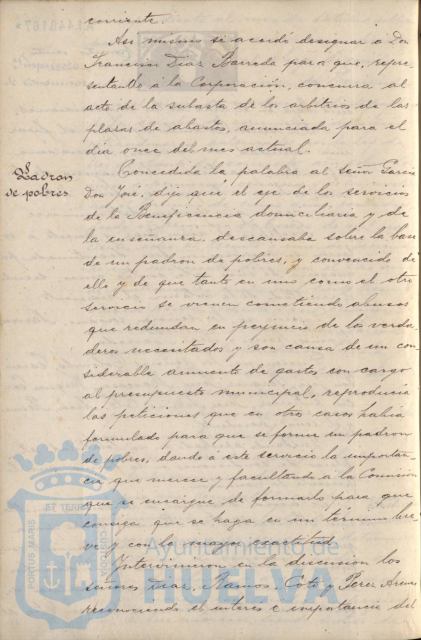 corriente.
Asi mismo se acordó designar a Don
Francisco Diaz Barreda para que, repre-
sentando á la Corporación, concurra al
acto de la subasta de los arbitrios de las
plazas de abastos, anunciada para el
dia once del mes actual.
Padron
de pobres
Concedida la palabra al Señor Garcia
Don José, dijo que el eje de los servicios
de la Beneficencia domiciliaria y de
la enseñanza, descansaba sobre la base
de un padron de pobres, y convencido de
ello y de que tanto en uno como el otro
servicio se vienen cometiendo abusos
que redundan en perjuicio de los verda-
deros necesitados y son causa de un con-
siderable aumento de gastos con cargo
al presupuesto municipal, reproducia
las peticiones que en otros casos habia
formulado para que se forme un padron
de pobres, dando á este servicio la importan-
cia que merece y facultando á la Comisión
que se encargue de formarlo para que
consiga que se haga en un término bre-
ve y con la mayor exactitud.
Intervinieron en la discusion los
señores Diaz, Ramos, Coto y Perez
reconociendo el interes e importancia del
PORTUS MARIS
ET TERRAE
CUSTODIA
Ayuntamiento de
HUELVA